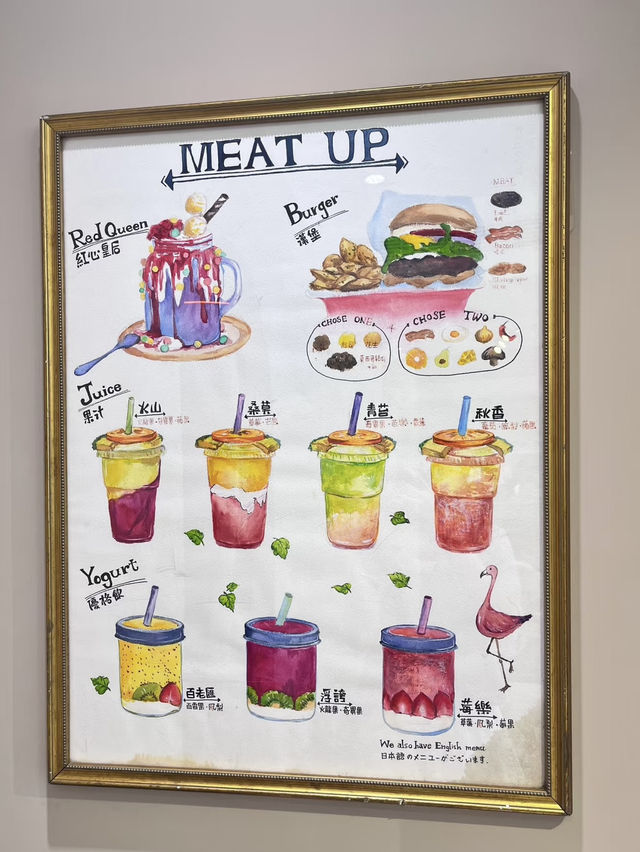 MEAT UP
Red Queen
紅心皇后
Burger
漢堡
MEAT
Beef
Bacon
CHOSE ONE
+
CHOSE TWO
Juice
果汁
火山
桑莫
青苔
秋香
Yogurt
優格飲
百老匯
百香果·鳳梨
浮誇
火龍果·奇異果
莓樂
草莓·鳳梨·蘋果
We also have English menu
日本語のメニューがございます.